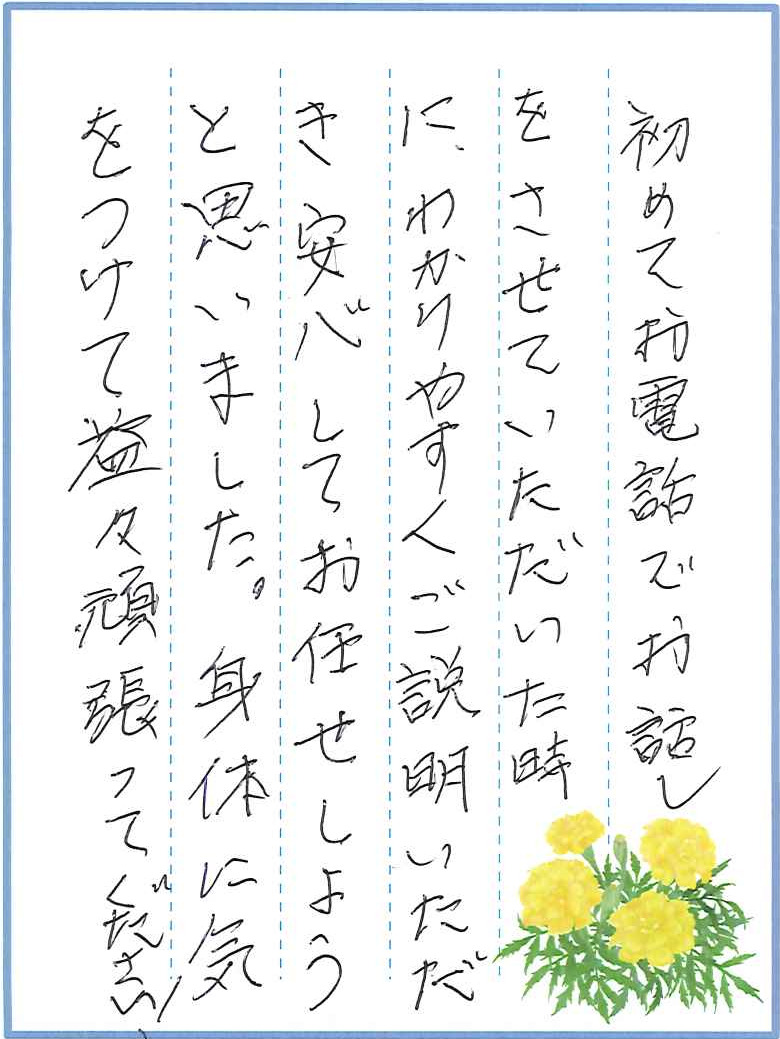 初めてお電話でお話し
をさせていただいた時
に、わかりやすくご説明いただ
き安心してお任せしよう
と思いました。身体に気
をつけて益々頑張ってください!